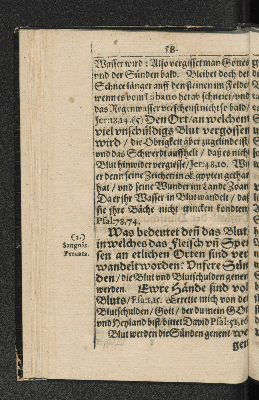 58.
Wasser wird: Also vergisset man Gottes
und der Sünden bald. Bleibet doch der
Schnee länger auff den steinen im Felde/
wenns vom Libano herab schneiet/ und
das Regenwasser verscheust nicht so bald/
Jer: 18.14. (5) Den Ort/ an welchem
viel unschüldigs Blut vergossen
wird/ die Obrigkeit aber zugelinde ist/
und das Schwerdt auffhelt/ daß es nicht
Blut hinwider vergiesse/ Jer: 48.10. Wie
er denn seine Zeichen in Egypten gethan
hat/ und seine Wunder im Lande Zoan
Da er ihr Wasser in Blut wandelt/ daß
sie ihre Bäche nicht trincken kondten
Psal: 78.74.
Was bedeutet deß das Blut
in welches das Fleisch uñ Spei
sen an etlichen Orten sind ver
wandelt worden: Unsere Sün
den/ die Blut und Blutschulden genent
werden. Ewre Hände sind vol
Bluts/ Esa: 1.15. Errette mich von den
Blutschulden/ Gott/ der du mein GOtt
und Heyland bist/ bittet David Psal: 51.16
Blut werden die Sünden genent/ we
gen
(3.)
Sangvis
Peccata.